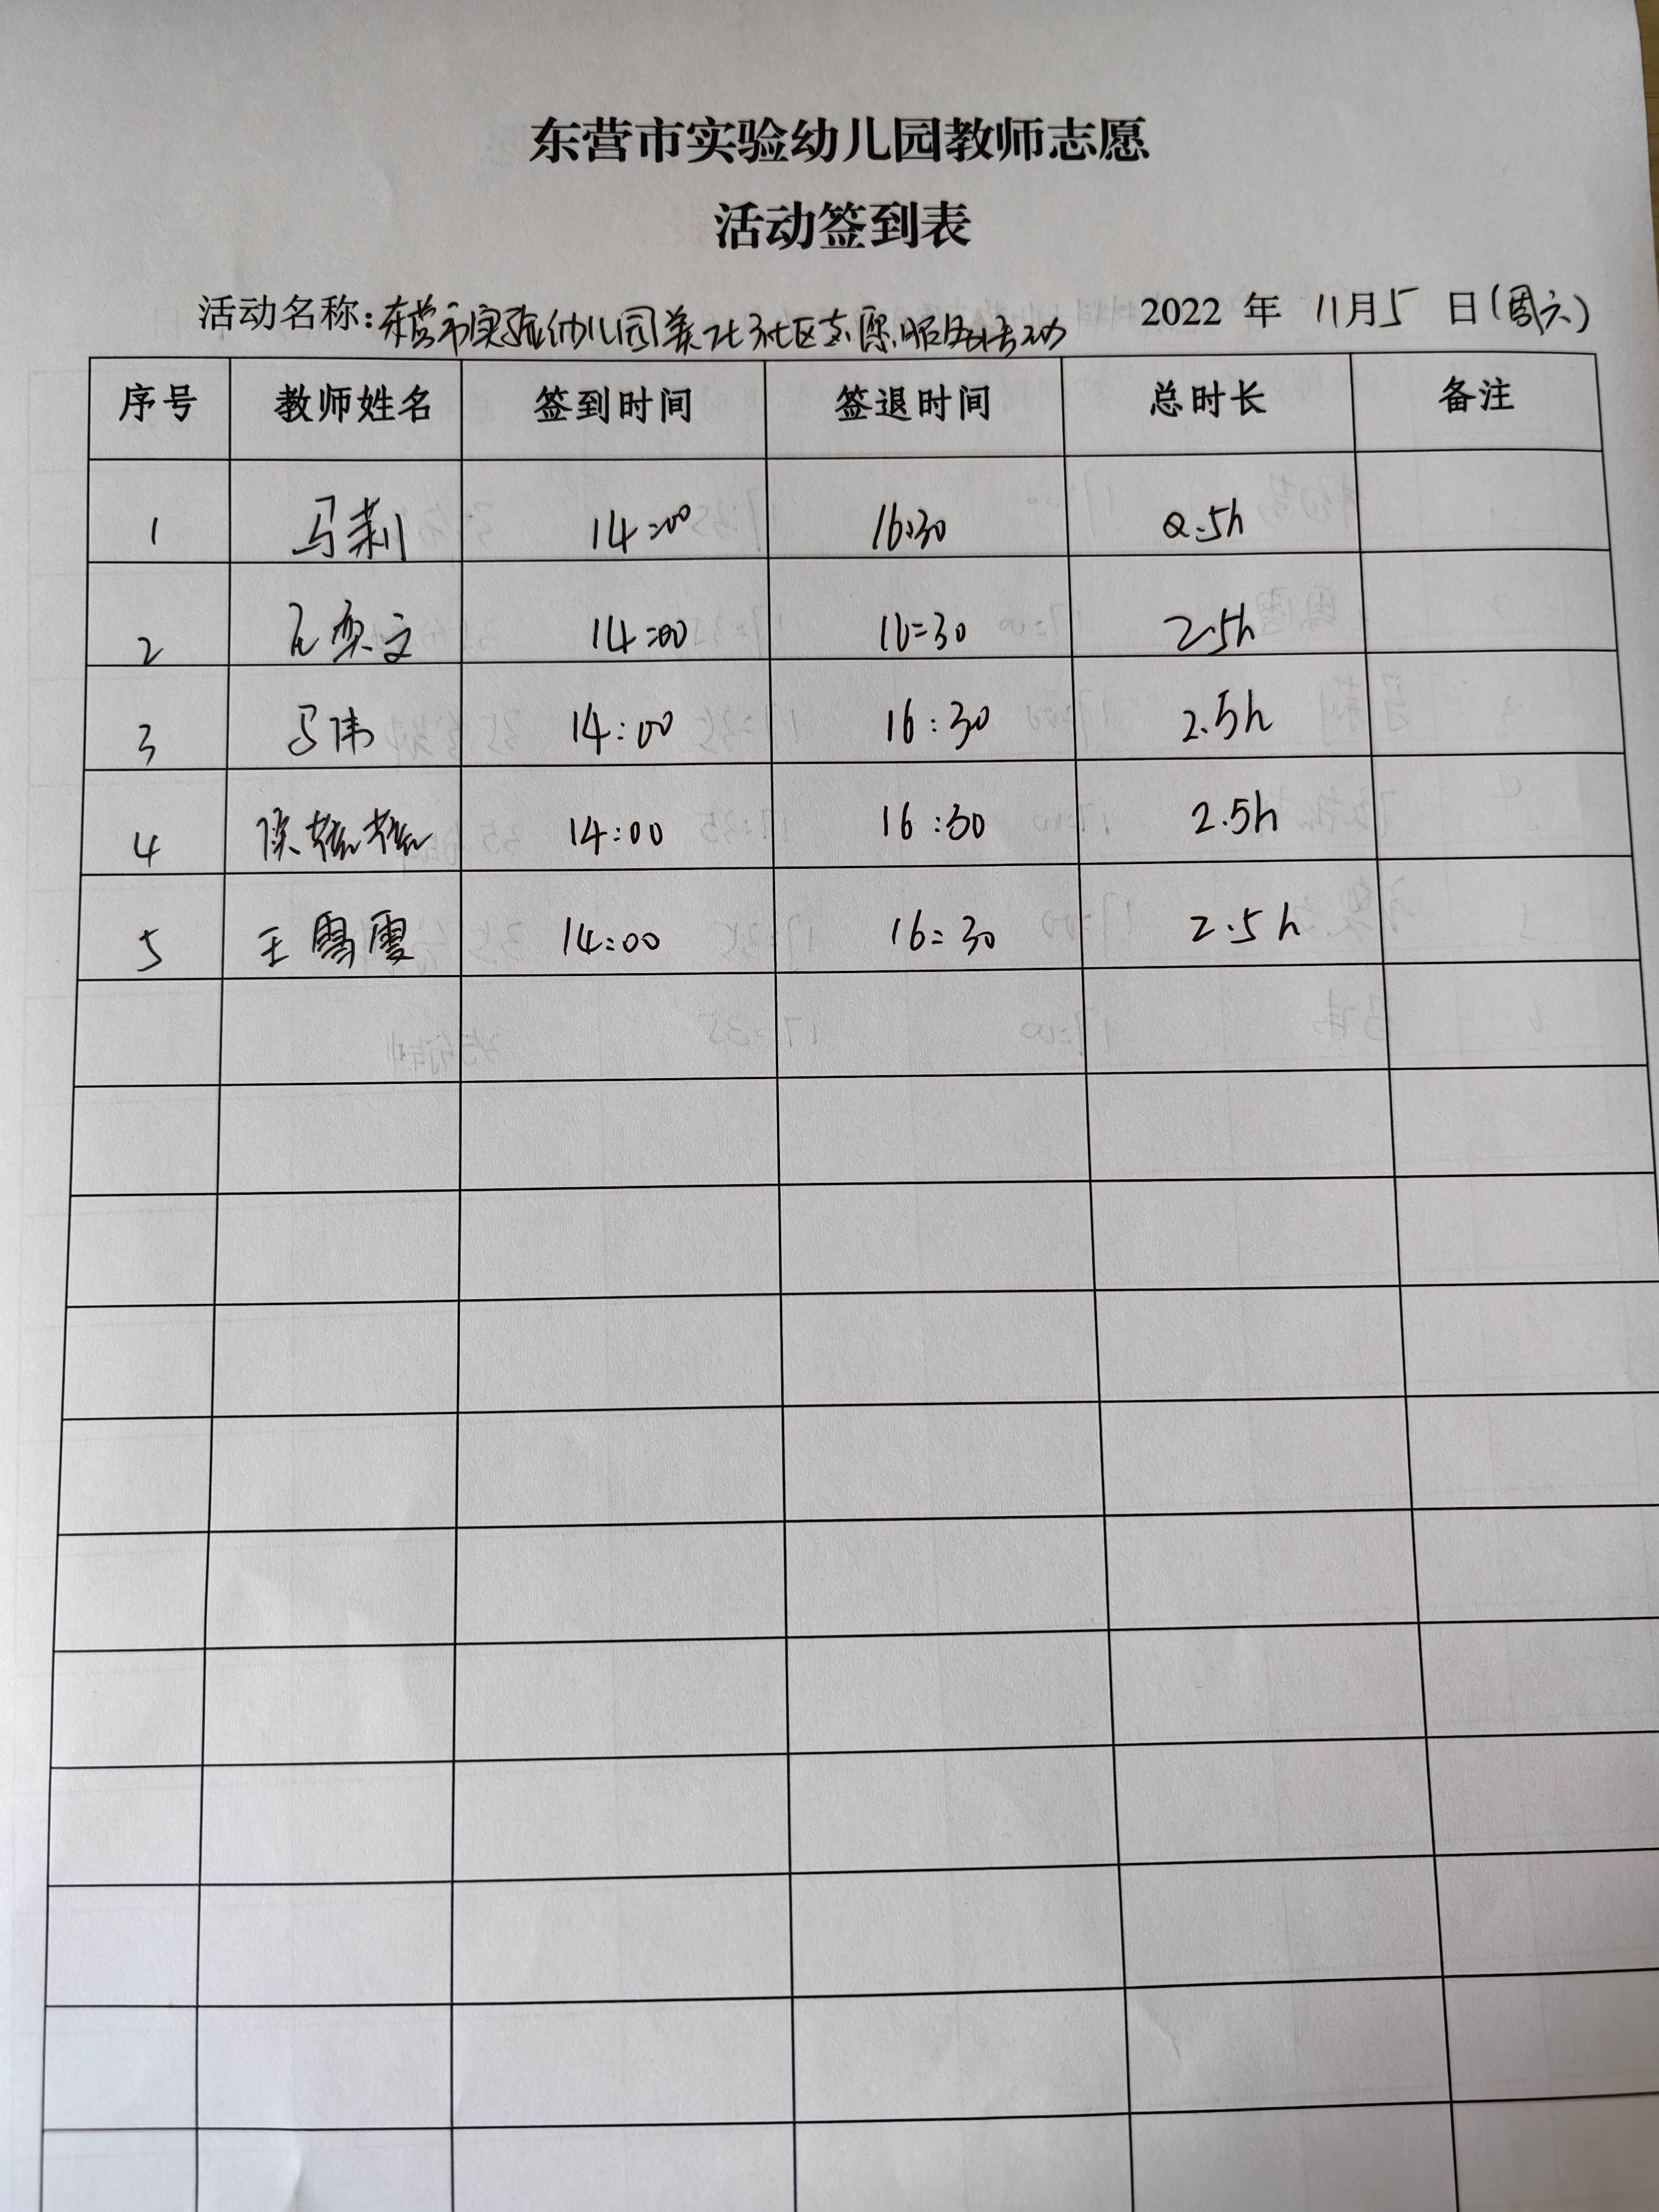 东营市实验幼儿园教师志愿
活动签到表
活动名称:东营市实验幼儿园美化社区志愿服务活动 2022 年 11月5 日(周六)
序号 教师姓名 签到时间 签退时间 总时长 备注
1 马莉 14:00 16:30 2.5h
2 14:00 16:30 2.5h
3 马伟 14:00 16:30 2.5h
4 14:00 16:30 2.5h
5 王雪雯 14:00 16:30 2.5h